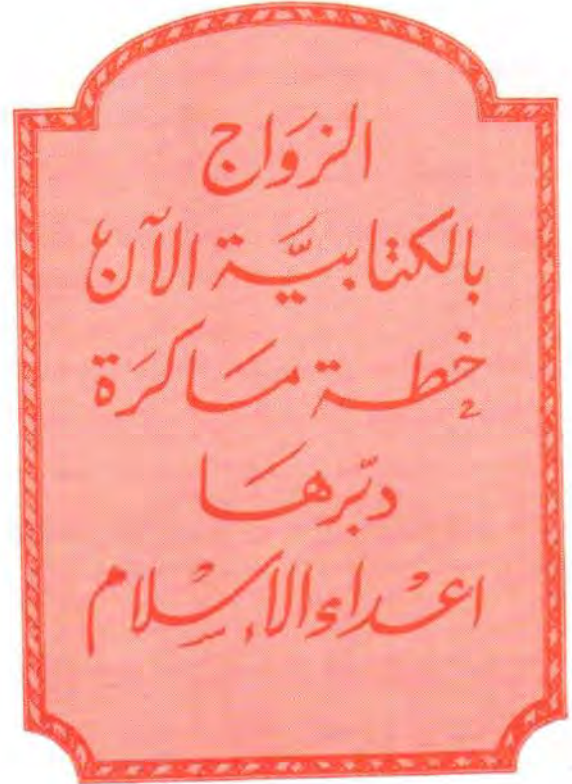 الزوَاج
بالكتابيَّة الآن
خطة مَاكرَة
دبّرهَا
اعْداء الإسْلام